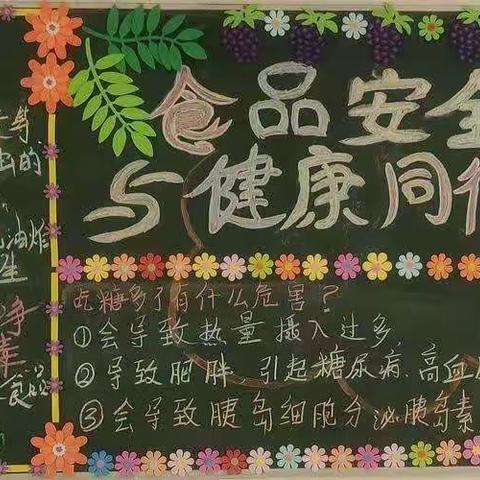 食品安全
与健康同行
吃糖多了有什么危害？
①会导致热量摄入过多,
②导致肥胖 引起糖尿病、高血
③会导致胰岛细胞分泌胰岛素
等
出的
油炸
生
净
食